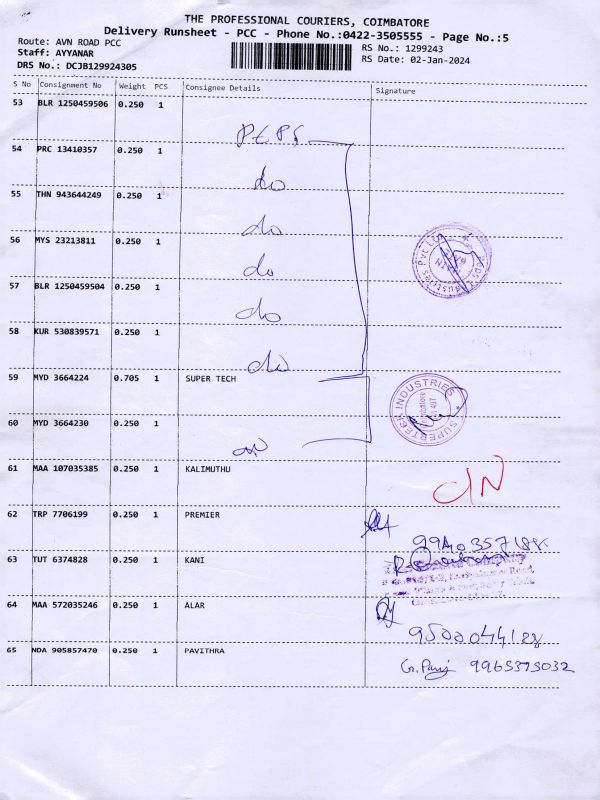 THE PROFESSIONAL COURIERS, COIMBATORE
Delivery Runsheet - PCC - Phone No.:0422-3505555 - Page No.:5
Route: AVN ROAD PCC
RS No.: 1299243
Staff: AYYANAR
RS Date: 02-Jan-2024
DRS No.: DCJB129924305
S No Consignment No Weight PCS Consignee Details Signature
53 BLR 1250459506 0.250 1
PEPS
54 PRC 13410357 0.250 1
do
55 THN 943644249 0.250 1
do
56 MYS 23213811 0.250 1
do
57 BLR 1250459504 0.250 1
do
58 KUR 530839571 0.250 1
do
59 MYD 3664224 0.705 1 SUPER TECH
SUPERTECH INDUSTRIES
60 MYD 3664230 0.250 1
61 MAA 107035385 0.250 1 KALIMUTHU
62 TRP 7706199 0.250 1 PREMIER
63 TUT 6374828 0.250 1 KANI
64 MAA 572035246 0.250 1 ALAR
65 NDA 905857470 0.250 1 PAVITHRA
9965375032